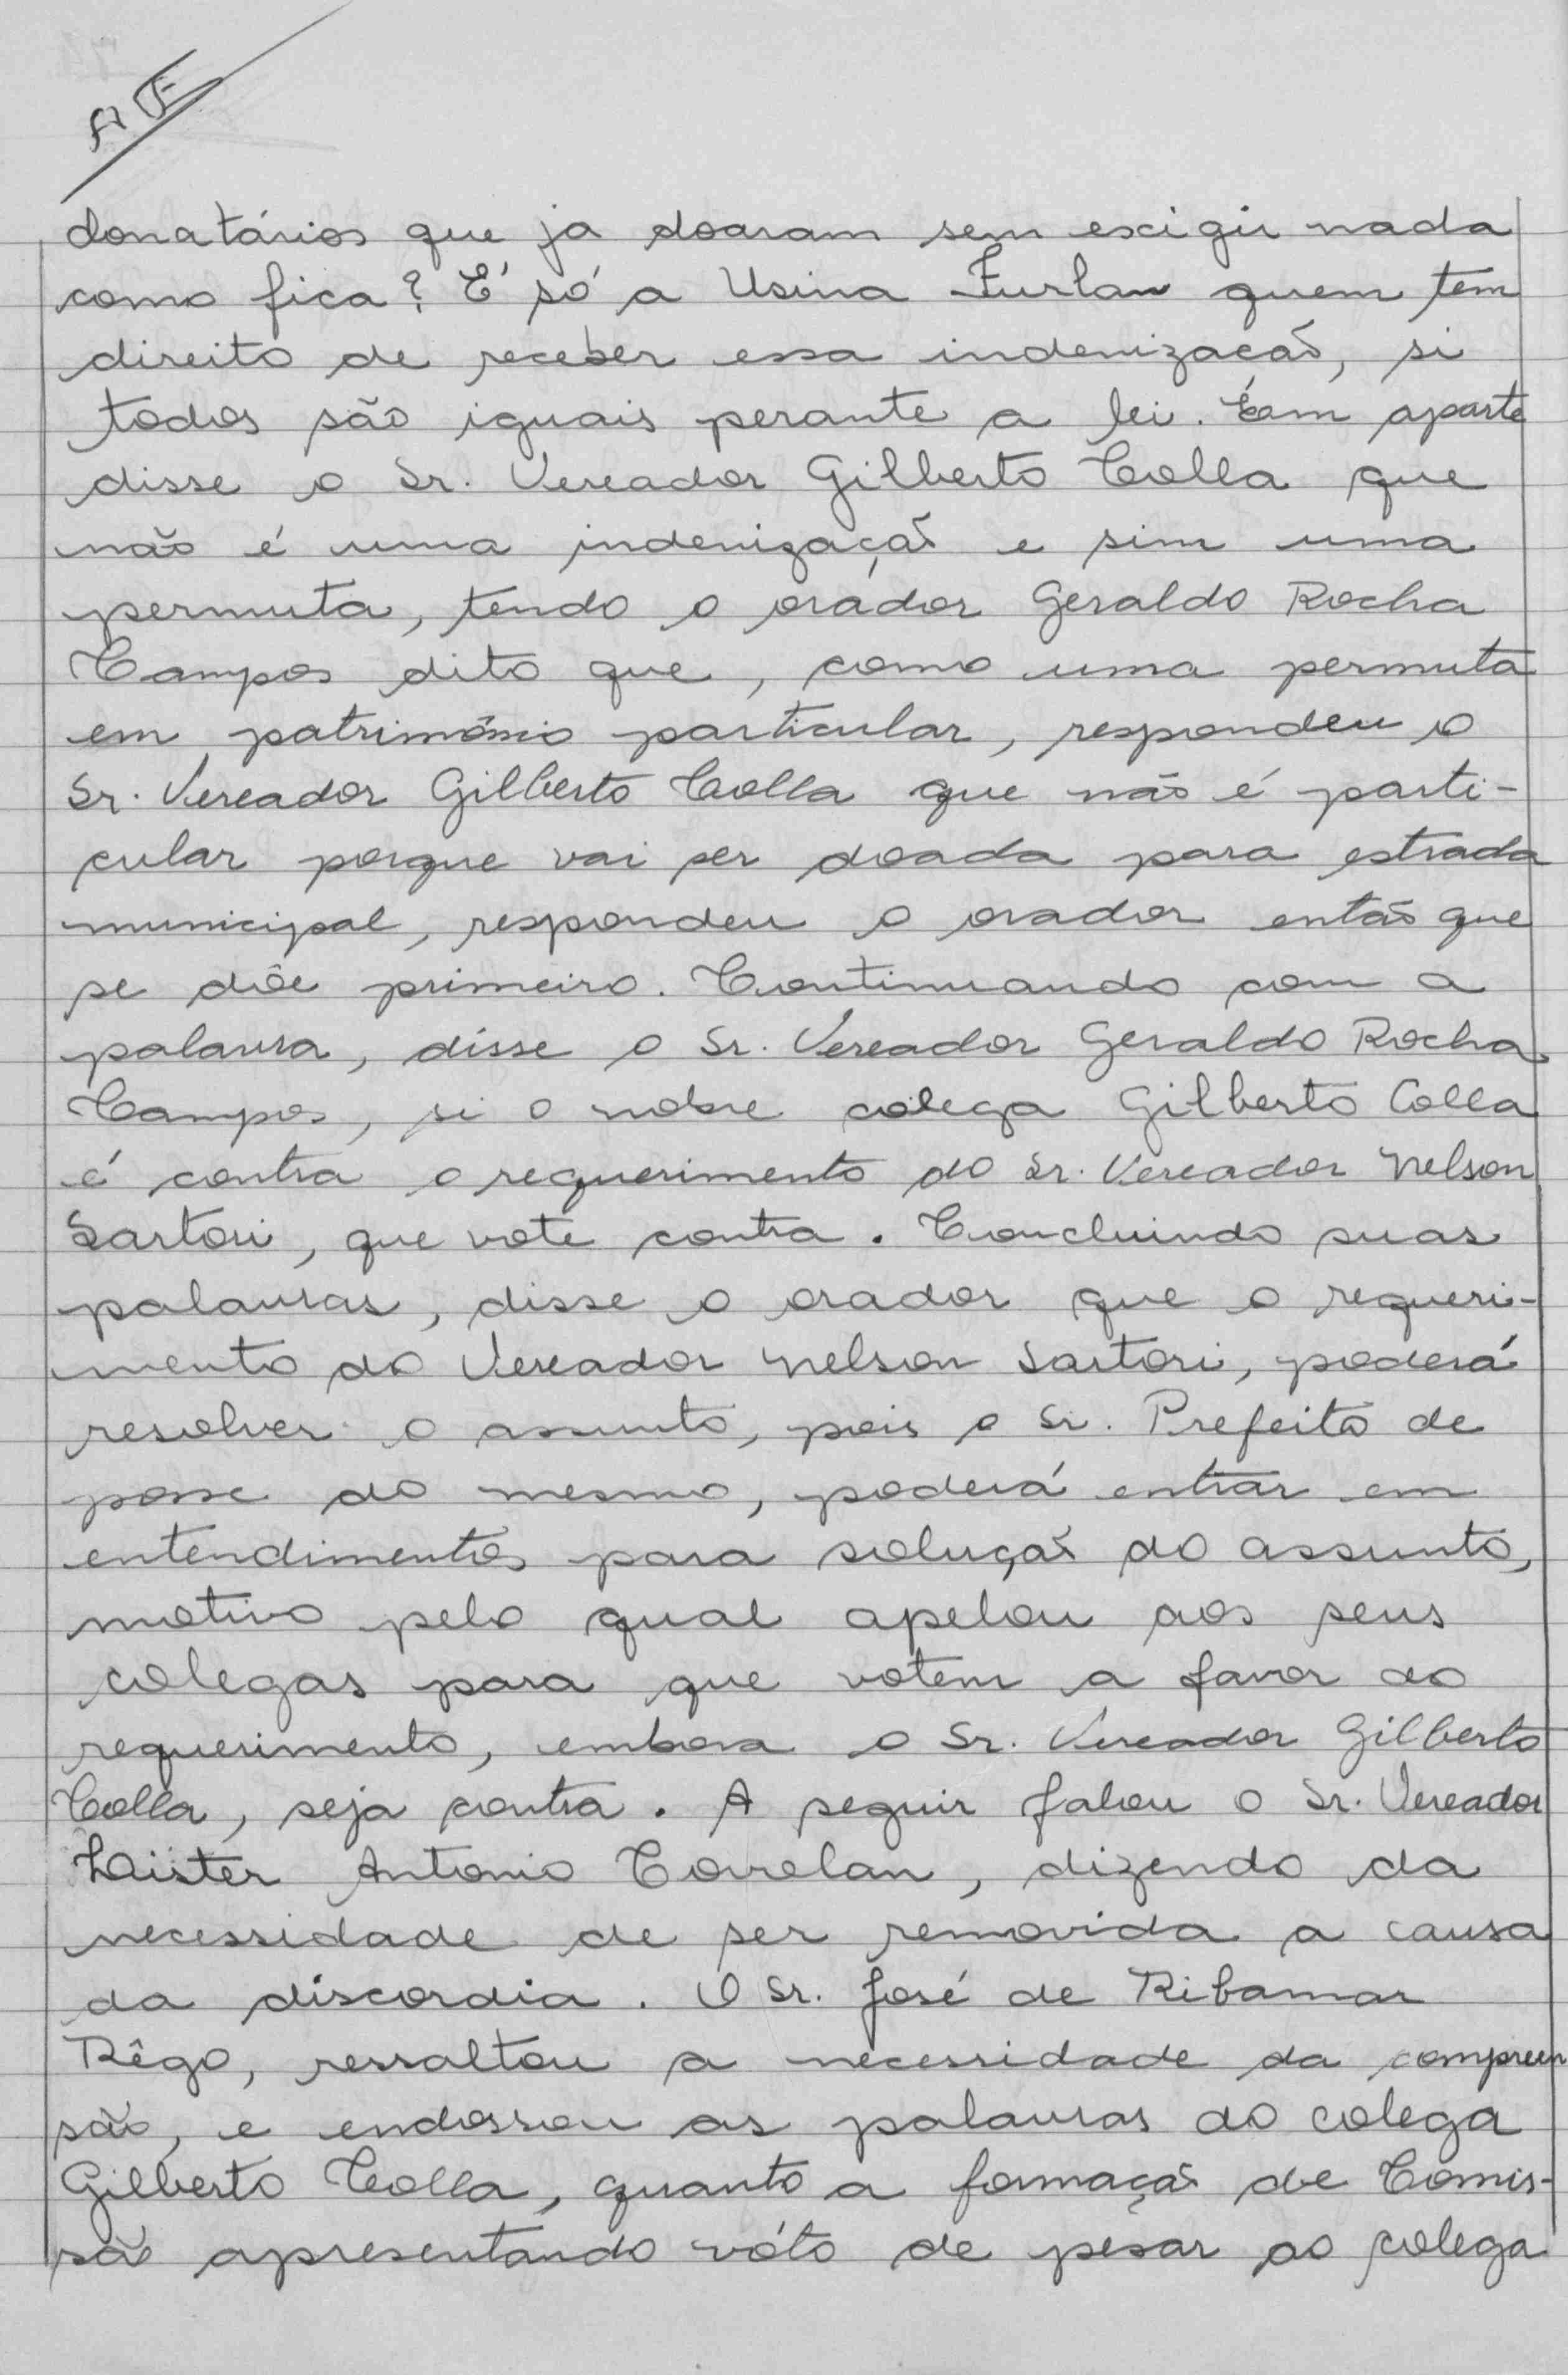 donatários que ja doaram sem exigir nada
como fica? É só a Usina Furlan quem tem
direito de receber essa indenização, si
todos são iguais perante a lei. Em aparte
disse o Sr. Vereador Gilberto Colla que
não é uma indenização e sim uma
permuta, tendo o orador Geraldo Rocha
Campos dito que, como uma permuta
em patrimônio particular, respondeu o
Sr. Vereador Gilberto Colla que não é parti-
cular porque vai ser doada para estrada
municipal, respondeu o orador então que
se dôe primeiro. Continuando com a
palavra, disse o Sr. Vereador Geraldo Rocha
Campos, si o nobre colega Gilberto Colla
é contra o requerimento do Sr. Vereador Nelson
Sartori, que vote contra. Concluindo suas
palavras, disse o orador que o requeri-
mento do Vereador Nelson Sartori, poderá
resolver o assunto, pois o Sr. Prefeito de
posse do mesmo, poderá entrar em
entendimentos para solução do assunto,
motivo pelo qual apelou aos seus
colegas para que votem a favor do
requerimento, embora o Sr. Vereador Gilberto
Colla, seja contra. A seguir falou o Sr. Vereador
Antonio Covolan, dizendo da
necessidade de ser removida a causa
da discordia. O Sr. José de Ribamar
Rêgo, ressaltou a necessidade da compreen
são, e endossou as palavras do colega
Gilberto Colla, quanto a formação de Comis-
são apresentando vóto de pesar ao colega